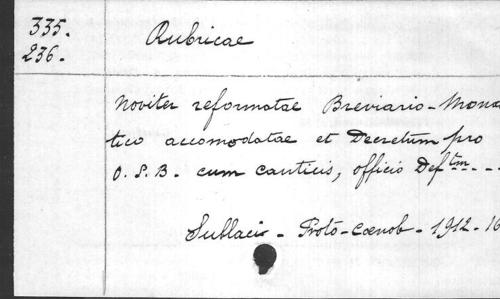 335.
236.
Rubricae
Noviter reformatae Breviario-Mona
tico accomodatae et Decretum pro
O. S. B. cum canticis, officio Def.tm
Sublacis - Proto-coenob - 1912 - 16